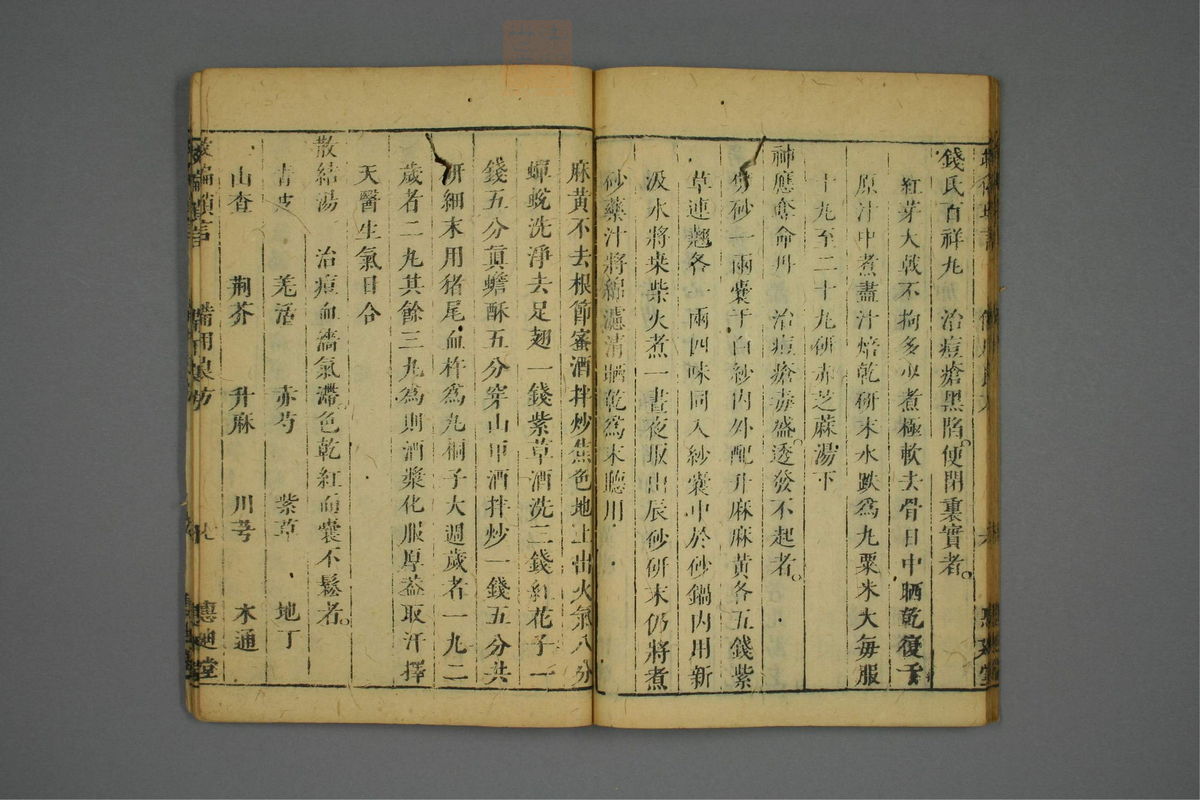 錢氏百祥丸　治痘瘡黑陷。便閉裏實者。
紅芽大戟不拘多少煮極軟去骨日中晒乾復于
原汁中煮盡汁焙乾研末水跌爲丸粟米大每服
十丸至二十丸研赤芝蔴湯下
神應奪命丹　治痘瘡毒盛。透發不起者。
砂一兩囊于白紗內外配升麻麻黃各五錢紫
草連翹各一兩四味同入紗囊中於砂鍋內用新
汲水將桒柴火煮一晝夜取出辰砂研末仍將煮
砂藥汁將綿濾清晒乾爲末聽用
麻黃不去根節蜜酒拌炒焦色地上出火氣八分
蟬蛻洗淨去足翅一錢紫草酒洗三錢紅花子一
錢五分眞蟾酥五分穿山甲酒拌炒一錢五分共
研細末用猪尾血杵爲丸桐子大週歲者一丸二
歲者二丸其餘三丸爲則酒漿化服厚蓋取汗擇
天醫生氣日合
散結湯　治痘血濇氣滯。色乾紅而囊不鬆者。
青皮　羌活　赤芍　紫草　地丁
山查　荆芥　升麻　川芎　木通
備用良方　惠迪堂